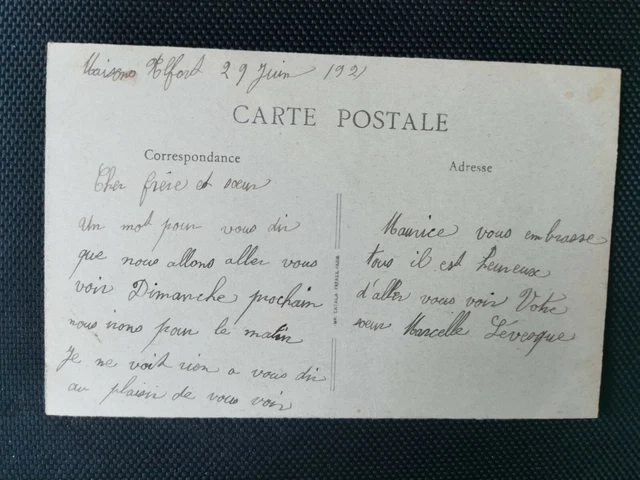 Maisons Alfort 29 Juin 1921
CARTE POSTALE
Correspondance
Adresse
Cher frère et sœur
Un mot pour vous dir
que nous allons aller vous
voir Dimanche prochain
nous irons pour le matin
Je ne voit rien a vous dir
au plaisir de vous voir
Maurice vous embrasse
tous il est heureux
d'aller vous voir Votre
sœur Marcelle Lévesque